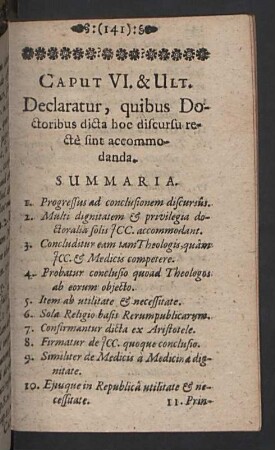 :(141):
CAPUT VI. & ULT.
Declaratur, quibus Do-
ctoribus dicta hoc discursu re-
ctè sint accommo-
danda.
SUMMARIA.
1. Progressus ad conclusionem discursus.
2. Multi dignitatem & privilegia do-
ctoralia solis JCC. accommodant.
3. Concluditur eam tam Theologis quàm
JCC. & Medicis competere.
4. Probatur conclusio quoad Theologos
ab eorum objecto.
5. Item ab utilitate & necessitate.
6. Sola Religio basis Rerumpublicarum.
7. Confirmantur dicta ex Aristotele.
8. Firmatur de JCC. quoque conclusio.
9. Similiter de Medicis à Medicinæ dig-
nitate.
10. Ejusque in Republicâ utilitate & ne-
cessitate.
11. Prin-